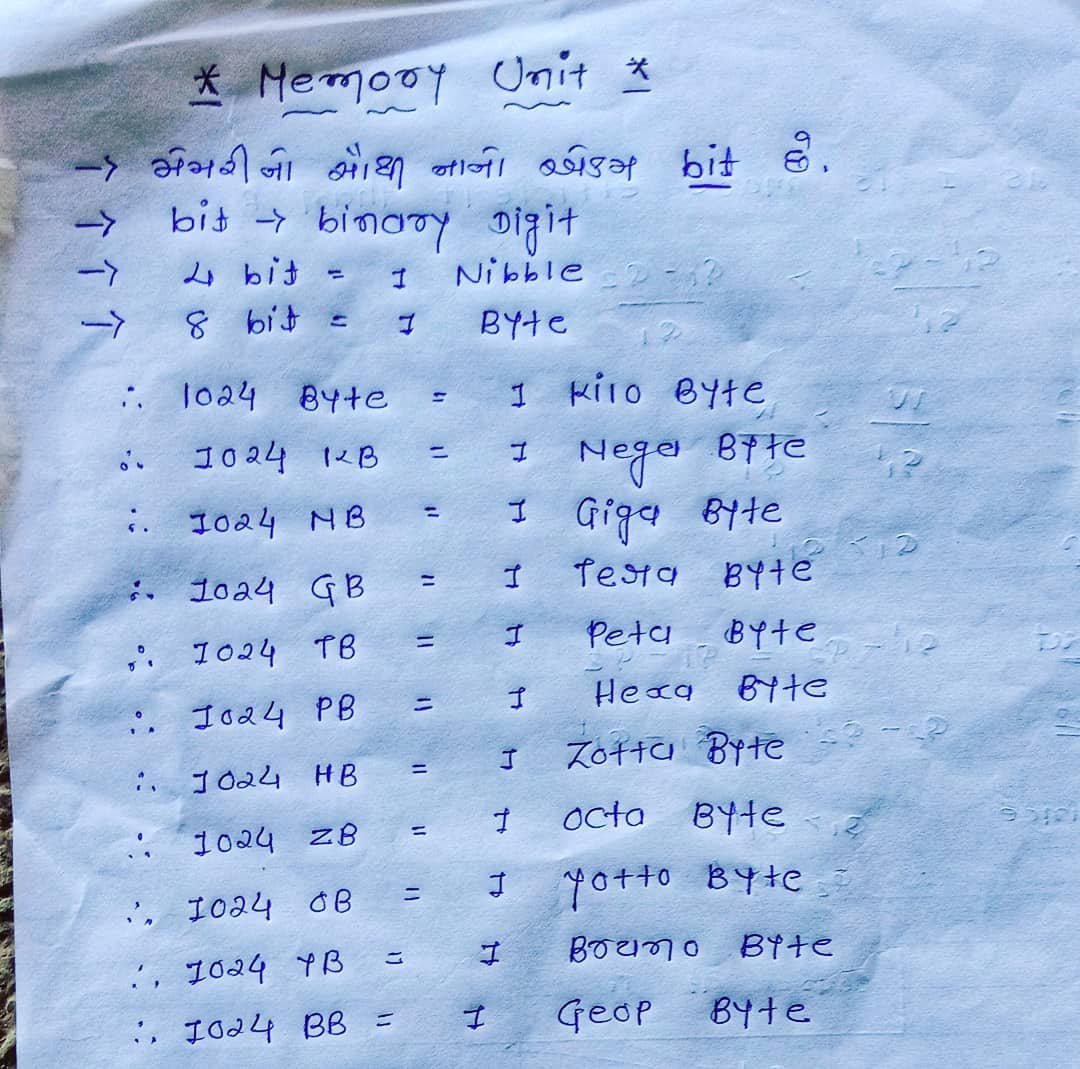 * Memory Unit *
→ મેમરીનો સૌથી નાનો એકમ bit છે.
→ bit → binary Digit
→ 4 bit = 1 Nibble
→ 8 bit = 1 Byte
∴ 1024 Byte = 1 Kilo Byte
∴ 1024 KB = 1 Mega Byte
∴ 1024 MB = 1 Giga Byte
∴ 1024 GB = 1 Tera Byte
∴ 1024 TB = 1 Peta Byte
∴ 1024 PB = 1 Hexa Byte
∴ 1024 HB = 1 Zotta Byte
∴ 1024 ZB = 1 Octa Byte
∴ 1024 OB = 1 Yotto Byte
∴ 1024 YB = 1 Byte
∴ 1024 BB = 1 Geop Byte